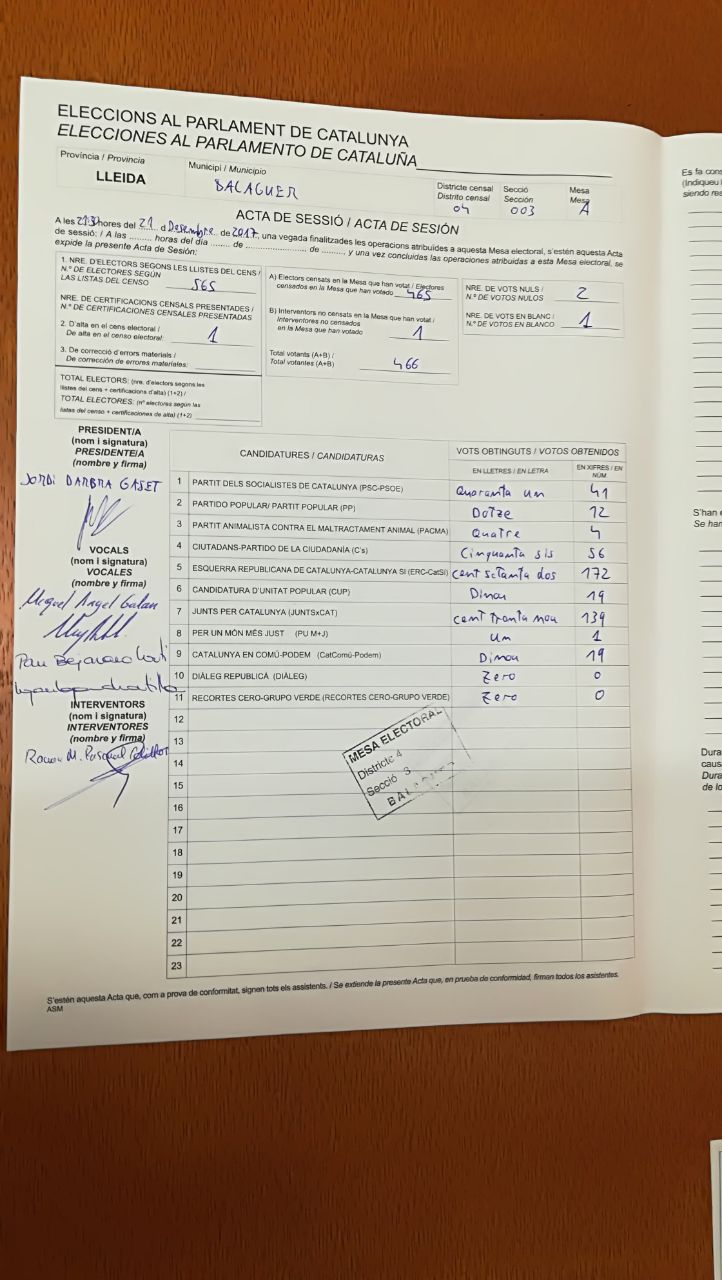 ELECCIONS AL PARLAMENT DE CATALUNYA
ELECCIONES AL PARLAMENTO DE CATALUÑA
Província / Provincia
LLEIDA
Municipi / Municipio
BALAGUER
Districte censal
Distrito censal
04
Secció
Sección
003
Mesa
Mesa
A
ACTA DE SESSIÓ / ACTA DE SESIÓN
A les 21:37 hores del 21 d Desembre de 2017, una vegada finalitzades les operacions atribuïdes a aquesta Mesa electoral, s'estén aquesta Acta
de sessió: / A las ......... horas del día ....... de ......................... de ......... y una vez concluidas las operaciones atribuidas a esta Mesa electoral, se
expide la presente Acta de Sesión:
1. NRE. D'ELECTORS SEGONS LES LLISTES DEL CENS /
N.º DE ELECTORES SEGÚN
LAS LISTAS DEL CENSO 565
NRE. DE CERTIFICACIONS CENSALS PRESENTADES /
N.º DE CERTIFICACIONES CENSALES PRESENTADAS
2. D'alta en el cens electoral /
De alta en el censo electoral: 1
3. De correcció d'errors materials /
De corrección de errores materiales:
TOTAL ELECTORS: (nre. d'electors segons les
llistes del cens + certificacions d'alta) (1+2) /
TOTAL ELECTORES: (nº electores según las
listas del censo + certificaciones de alta) (1+2)
A) Electors censats en la Mesa que han votat / Electores
censados en la Mesa que han votado 465
B) Interventors no censats en la Mesa que han votat /
Interventores no censados
en la Mesa que han votado 1
Total votants (A+B) /
Total votantes (A+B) 466
NRE. DE VOTS NULS /
N.º DE VOTOS NULOS 2
NRE. DE VOTS EN BLANC /
N.º DE VOTOS EN BLANCO 1
PRESIDENT/A
(nom i signatura)
PRESIDENTE/A
(nombre y firma)
JORDI DARBRA GASET
VOCALS
VOCALES
(nombre y firma)
Miguel Angel Galan
INTERVENTORS
(nom i signatura)
INTERVENTORES
(nombre y firma)
CANDIDATURES / CANDIDATURAS
VOTS OBTINGUTS / VOTOS OBTENIDOS
EN LLETRES / EN LETRA
EN XIFRES / EN NÚM.
1 PARTIT DELS SOCIALISTES DE CATALUNYA (PSC-PSOE) Quaranta un 41
2 PARTIDO POPULAR/ PARTIT POPULAR (PP) Dotze 12
3 PARTIT ANIMALISTA CONTRA EL MALTRACTAMENT ANIMAL (PACMA) Quatre 4
4 CIUTADANS-PARTIDO DE LA CIUDADANÍA (C's) Cinquanta sis 56
5 ESQUERRA REPUBLICANA DE CATALUNYA-CATALUNYA SÍ (ERC-CatSí) cent setanta dos 172
6 CANDIDATURA D'UNITAT POPULAR (CUP) Dinou 19
7 JUNTS PER CATALUNYA (JUNTSxCAT) cent tranta nou 139
8 PER UN MÓN MÉS JUST (PU M+J) un 1
9 CATALUNYA EN COMÚ-PODEM (CatComú-Podem) Dinou 19
10 DIÀLEG REPUBLICÀ (DIÀLEG) Zero 0
11 RECORTES CERO-GRUPO VERDE (RECORTES CERO-GRUPO VERDE) Zero 0
12
13
14
15
16
17
18
19
20
21
22
23
MESA ELECTORAL
Districte 4
Secció 3
S'estén aquesta Acta que, com a prova de conformitat, signen tots els assistents. / Se extiende la presente Acta que, en prueba de conformidad, firman todos los asistentes.
ASM
Es fa cons
(Indiqueu
siendo res
S'han
Se han
Dura
caus
Dura
de lo